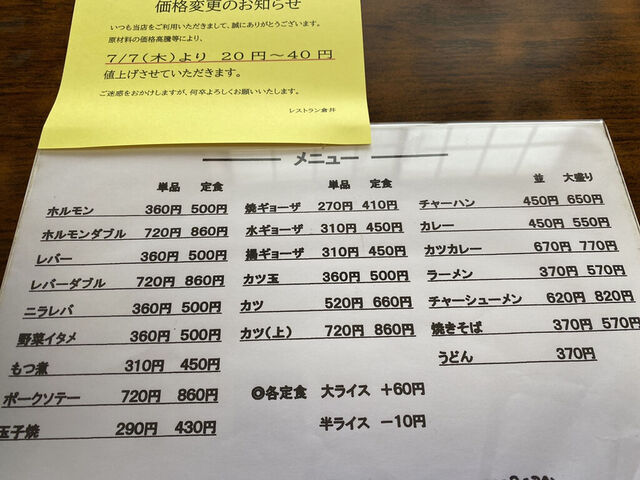 価格変更のお知らせ
いつも当店をご利用いただきまして、誠にありがとうございます。
原材料の価格高騰等により、
7/7(木)より 20円～40円
値上げさせていただきます。
ご迷惑をおかけしますが、何卒よろしくお願いいたします。
レストラン倉井
メニュー
単品 定食
ホルモン 360円 500円
ホルモンダブル 720円 860円
レバー 360円 500円
レバーダブル 720円 860円
ニラレバ 360円 500円
野菜イタメ 360円 500円
もつ煮 310円 450円
ポークソテー 720円 860円
玉子焼 290円 430円
単品 定食
焼ギョーザ 270円 410円
水ギョーザ 310円 450円
揚ギョーザ 310円 450円
カツ玉 360円 500円
カツ 520円 660円
カツ(上) 720円 860円
◎各定食 大ライス +60円
半ライス -10円
並 大盛り
チャーハン 450円 650円
カレー 450円 550円
カツカレー 670円 770円
ラーメン 370円 570円
チャーシューメン 620円 820円
焼きそば 370円 570円
うどん 370円